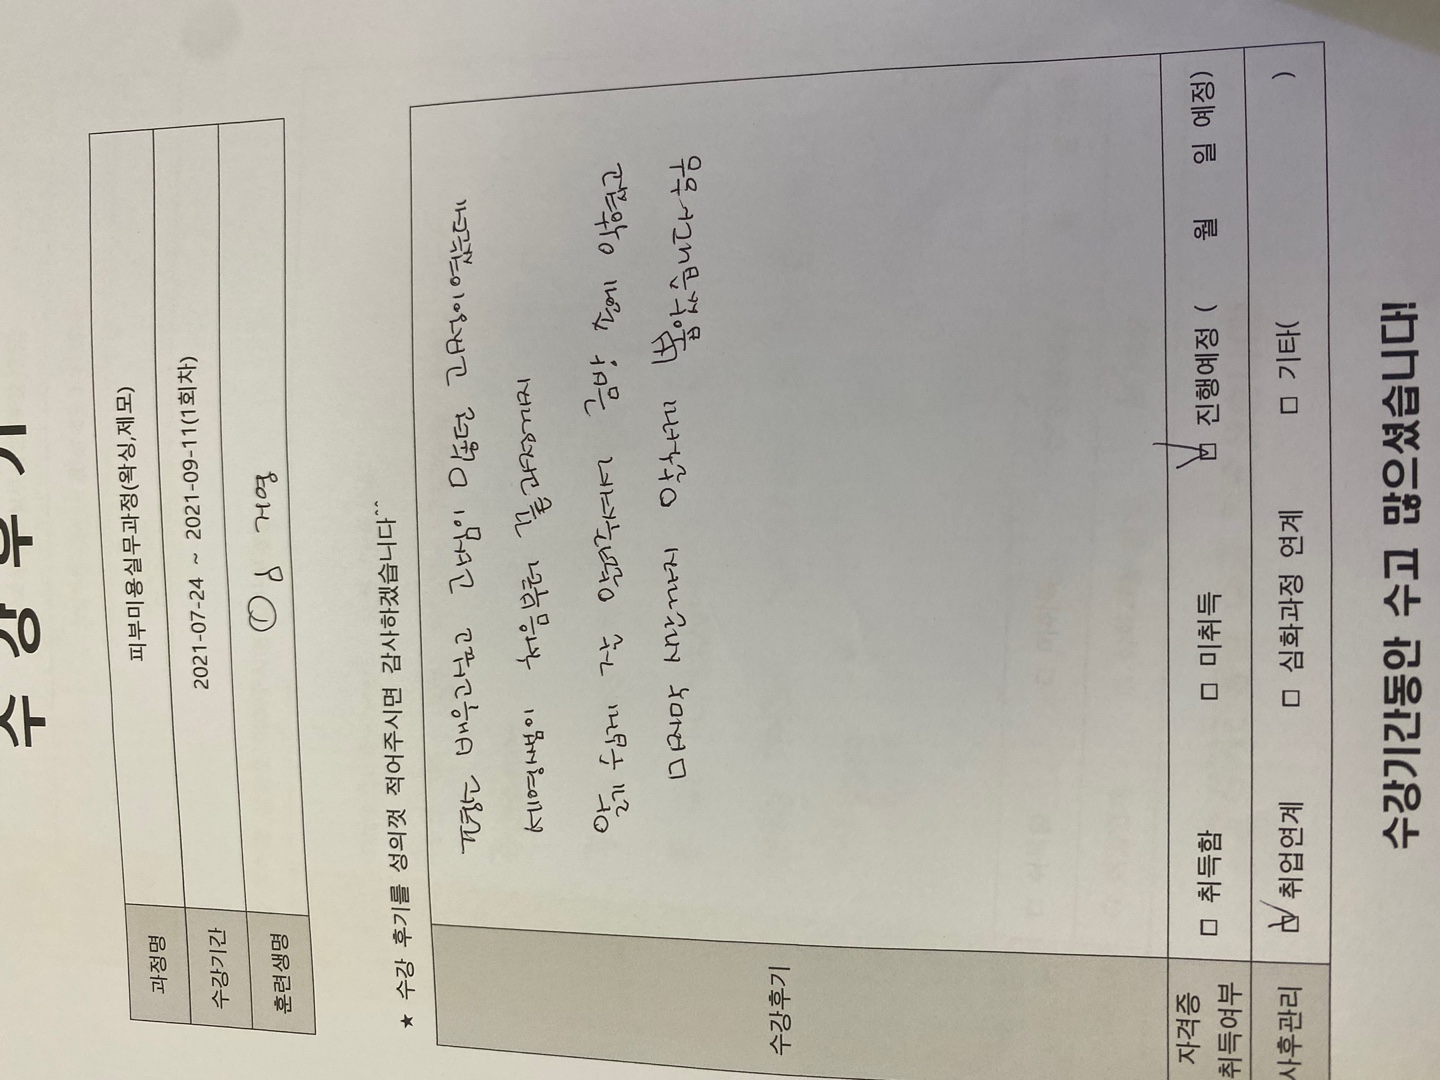 수 강 후 기
과정명 피부미용실무과정(왁싱,제모)
수강기간 2021-07-24 ~ 2021-09-11(1회차)
훈련생명 임
★ 수강 후기를 성의껏 적어주시면 감사하겠습니다^^
수강후기
평소 배우고싶고 관심이 많던 과정이였는데
세영쌤이 처음부터 끝과정까지
알기 쉽게 잘 알려주셔서 금방 손에 익혔고
마지막 시간까지 알차게 뽑았습니다 ㅎㅎ
자격증 취득여부 □ 취득함 □ 미취득 ☑ 진행예정 ( 월 일 예정)
사후관리 ☑ 취업연계 □ 심화과정 연계 □ 기타( )
수강기간동안 수고 많으셨습니다!